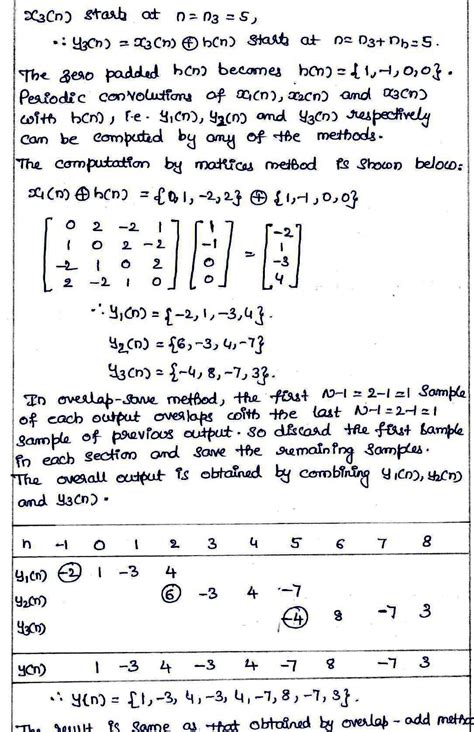 x3(n) starts at n = n3 = 5,
∴ y3(n) = x3(n) ⊕ h(n) starts at n = n3 + nh = 5.
The zero padded h(n) becomes h(n) = {1, -1, 0, 0}.
Periodic convolutions of x1(n), x2(n) and x3(n)
with h(n), i.e. y1(n), y2(n) and y3(n) respectively
can be computed by any of the methods.
The computation by matrices method is shown below:
x1(n) ⊕ h(n) = {0, 1, -2, 2} ⊕ {1, -1, 0, 0}
[0 2 -2 1] [1] [-2]
[1 0 2 -2] [-1] = [1]
[-2 1 0 2] [0] [-3]
[2 -2 1 0] [0] [4]
∴ y1(n) = {-2, 1, -3, 4}.
y2(n) = {6, -3, 4, -7}
y3(n) = {-4, 8, -7, 3}.
In overlap-save method, the first N-1 = 2-1 = 1 sample
of each output overlaps with the last N-1 = 2-1 = 1
sample of previous output. So discard the first sample
in each section and save the remaining samples.
The overall output is obtained by combining y1(n), y2(n)
and y3(n).
n -1 0 1 2 3 4 5 6 7 8
y1(n) -2 1 -3 4
y2(n) 6 -3 4 -7
y3(n) -4 8 -7 3
y(n) 1 -3 4 -3 4 -7 8 -7 3
∴ y(n) = {1, -3, 4, -3, 4, -7, 8, -7, 3}.
The result is same as that obtained by overlap-add metho